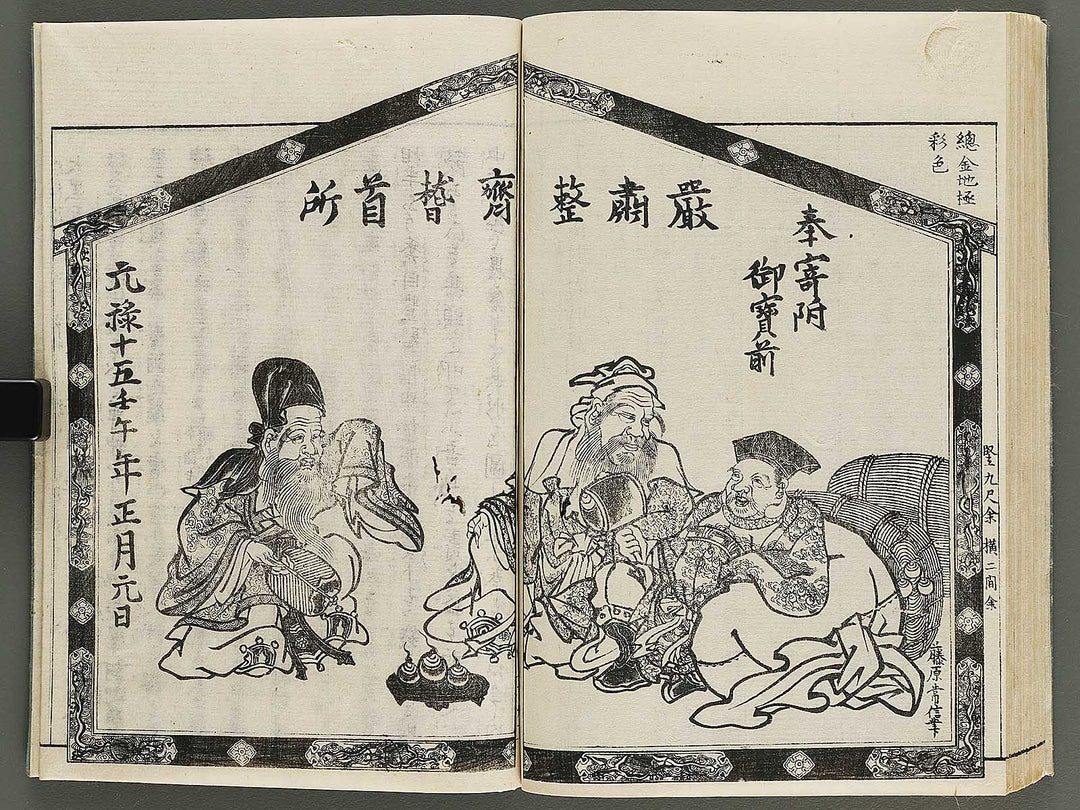 總金地極
彩色
竪九尺余 横二間余
奉寄附
御寳前
嚴肅整齊稽首所
元祿十五壬午年正月元日
藤原常信筆